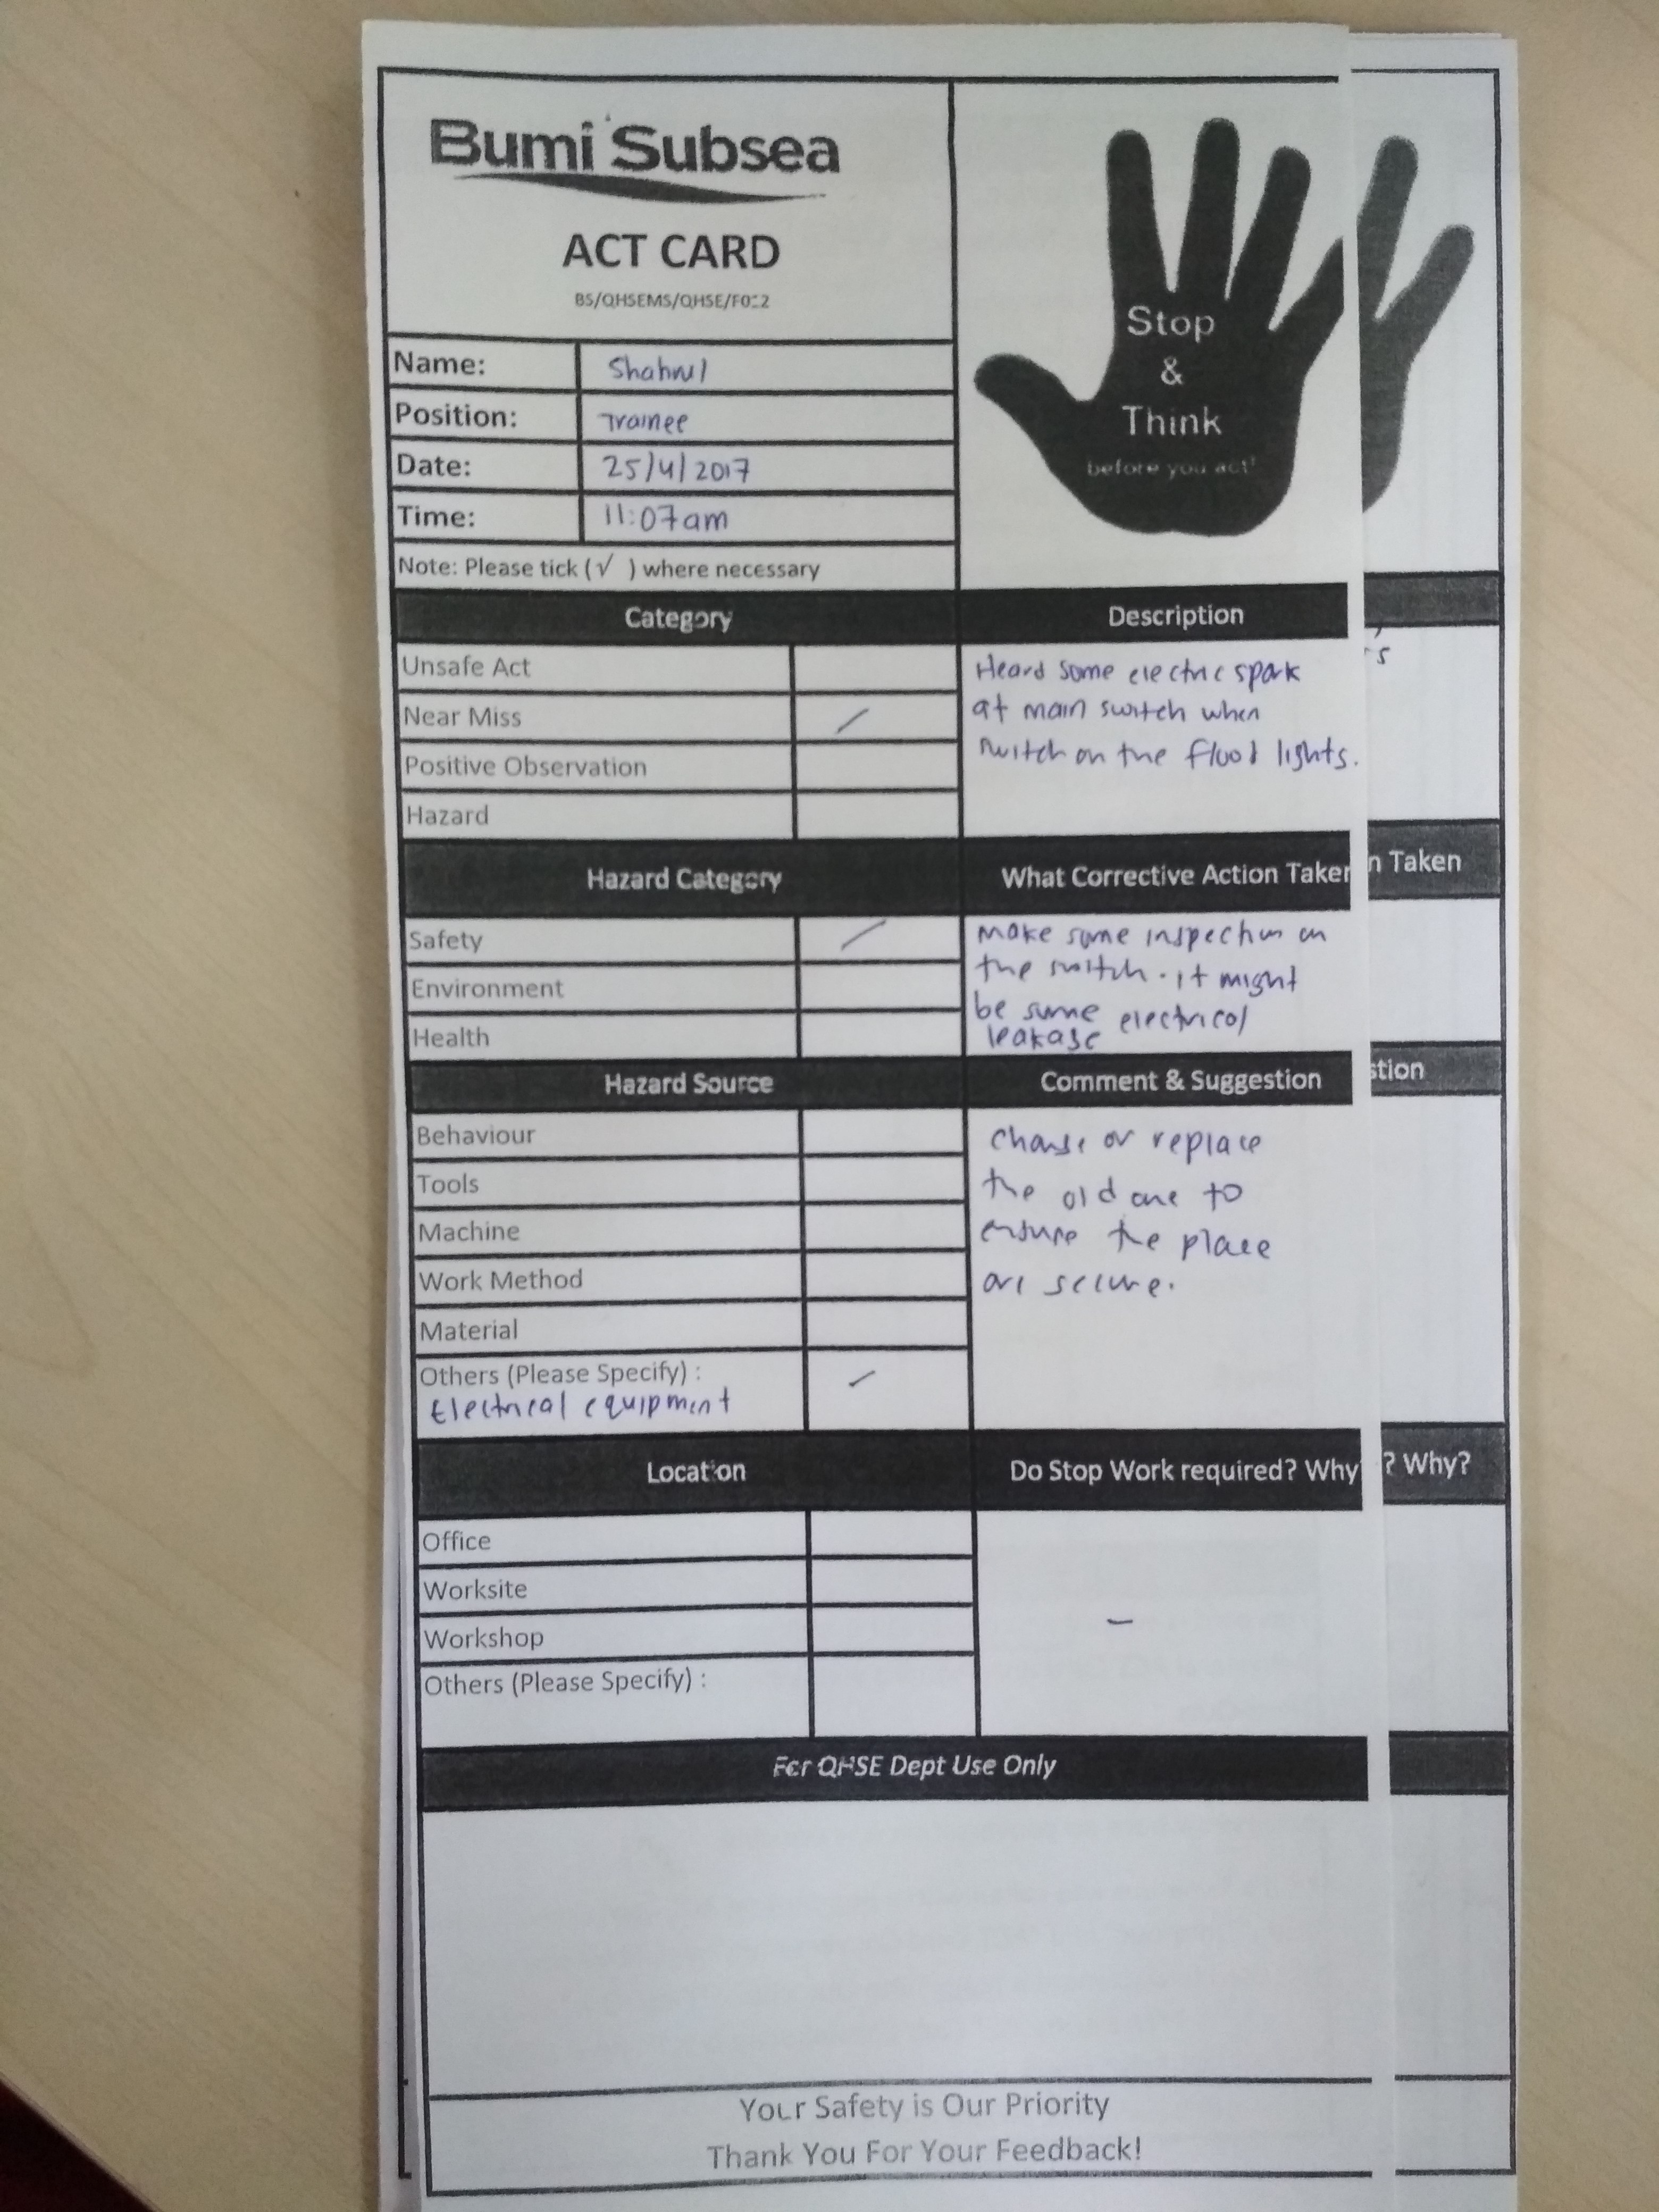 Bumi Subsea
ACT CARD
BS/QHSEMS/QHSE/F012
Stop
&
Think
before you act!
Name: Shahrul
Position: Trainee
Date: 25/4/2017
Time: 11:07am
Note: Please tick (√ ) where necessary
Category
Unsafe Act
Near Miss /
Positive Observation
Hazard
Description
Heard some electric spark
at main switch when
switch on the flood lights.
Hazard Category
Safety /
Environment
Health
What Corrective Action Taken
make some inspection on
the switch. it might
be some electrical
leakage
Hazard Source
Behaviour
Tools
Machine
Work Method
Material
Others (Please Specify) : /
Electrical equipment
Comment & Suggestion
change or replace
the old one to
ensure the place
are secure.
Location
Office
Worksite
Workshop
Others (Please Specify) :
Do Stop Work required? Why
-
For QHSE Dept Use Only
Your Safety is Our Priority
Thank You For Your Feedback!
n Taken
stion
? Why?